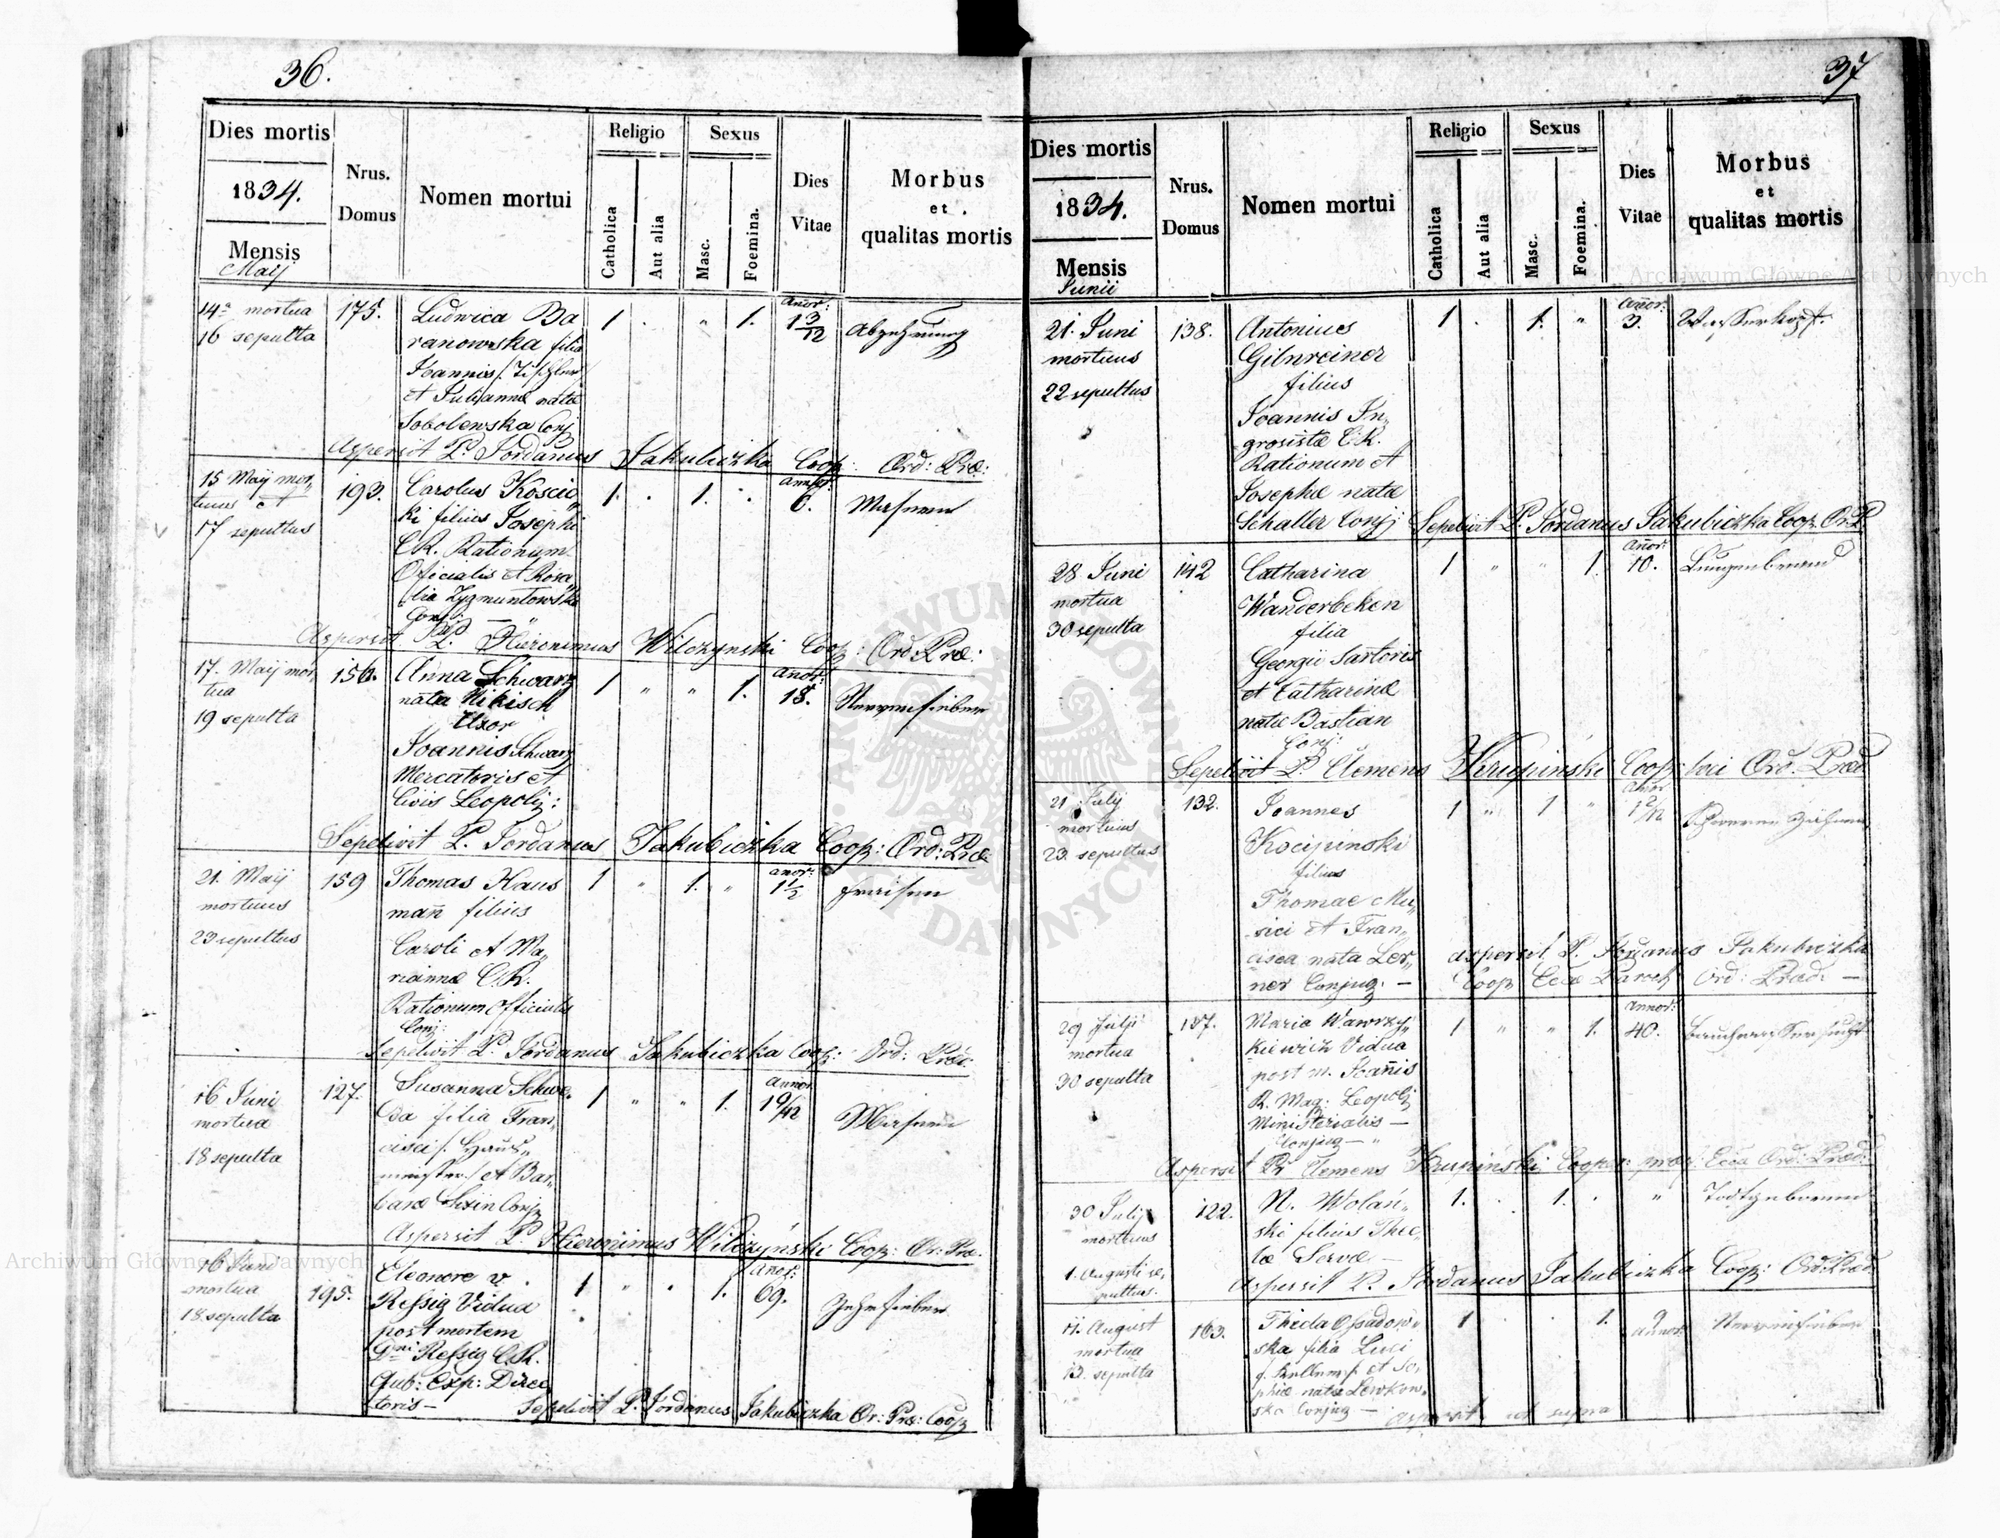 36.
Dies mortis
1834.
Mensis
Maij
Nrus.
Domus
Nomen mortui
Religio
Catholica
Aut alia
Sexus
Masc.
Foemina.
Dies
Vitae
Morbus
et
qualitas mortis
14a mortua
16 sepulta
175.
Ludwica Ba
ranowska filia
Joannis
et Julianna nata
Sobolewska Conj
1 . „ 1.
Anor:
1 3/12
Abzehrung
Aspersit P. Jordanus Jakubiczka Coop: Ord: Præ:
15 Maij mor„
tuus et
17 sepultus
193.
Carolus Koscic
ki filius Josephi
C.R. Rationum
Officialis et Rosa
lia Zygmuntowska
Conj:
1. . 1.
6.
Masern
Aspersit P. Hieronimus Wilczynski Coop: Ord: Præ:
17. Maij mor„
tua
19 sepulta
156.
Anna Schwarz
nata Nikisch
Uxor
Joannis Schwarz
Mercatoris et
Civis Leopolij:
1 „ „ 1.
Anor:
18.
Nervenfieber
Sepelivit P. Jordanus Jakubiczka Coop: Ord: Præ:
21. Maij
mortuus
23 sepultus
159
Thomas Haus
mañ filius
Caroli et Ma„
rianna C.R.
Rationum Officialis
Conj:
1 „ 1. „
anor:
1 1/2
Fraisen
Sepelivit P. Jordanus Jakubiczka Coop: Ord: Præd:
16 Juni
mortua
18 sepulta
127.
Susanna Schwe„
da filia Fran„
cisci /: Haus„
meister :/ et Bar„
bara Conj
1 „ „ 1.
Annor
Masern
Aspersit P. Hieronimus Wilczyński Coop: Or: Præ.
16 Juni
mortua
18 sepulta
195.
Eleonore v.
Ressig Vidua
post mortem
Dni Ressig C.R.
Gub: Exp: Direc
toris —
1 „ . 1.
Anor:
69.
Zehrfieber
Sepelivit P. Jordanus Jakubiczka Or: Præ: Coop
37
Dies mortis
1834.
Mensis
Junii
Nrus.
Domus
Nomen mortui
Religio
Catholica
Aut alia
Sexus
Masc.
Foemina.
Dies
Vitae
Morbus
et
qualitas mortis
21. Juni
mortuus
22 sepultus
138.
Antonius
Gilnreiner
filius
Joannis In„
grosistæ C.R.
Rationum et
Josephæ nata
Schaller Conjj
1 . 1. „
Añor:
3.
Wasserkopf.
Sepelivit P. Jordanus Jakubiczka Coop. Or. P.
28 Juni
mortua
30 sepulta
142
Catharina
Wanderbeken
filia
Georgii Sartoris
et Catharinæ
natæ Bastian
Conj:
1 „ „ 1.
Añor:
10.
Lungenbrand
Sepelivit P. Clemens Krupiński Coop: loci Ord. Præd
21 Julij
mortuus
23. sepultus
132.
Joannes
Kocipinski
filius
Thomae Mu„
sici et Fran„
cisca nata Ler„
ner Conjug. —
1 „ 1 „
Anor
1 2/12
aspersit P. Jordanus Jakubiczka
Coop Ord: Præd: —
29 Julij
mortua
30 sepulta
137.
Maria Wawrzy„
kiewicz Vidua
post m. Joañis
R. Mag: Leopolj
Ministerialis —
Conjug — „
1 „ „ 1.
Annor:
40.
Bauchwassersucht
Aspersit Pr Clemens Krupiński Cooper: Ord: Præd:
30 Julij
mortuus
1. Augusti se„
pultus.
122.
N. Wolań„
ski filius Thec„
læ Servæ —
1. . 1. .
„
Todtgeboren
Aspersit P. Jordanus Jakubiczka Coop: Ord: Præd
11. August
mortua
13. sepulta
163.
Thecla Ossadow„
ska filia Luci
et So„
phiæ natæ Lewkow„
ska Conjug —
1 . . 1.
9
annor:
Nervenfieber
aspersit ut supra
Archiwum Główne Akt Dawnych
Archiwum Główne Akt Dawnych
ARCHIWUM GŁÓWNE AKT DAWNYCH